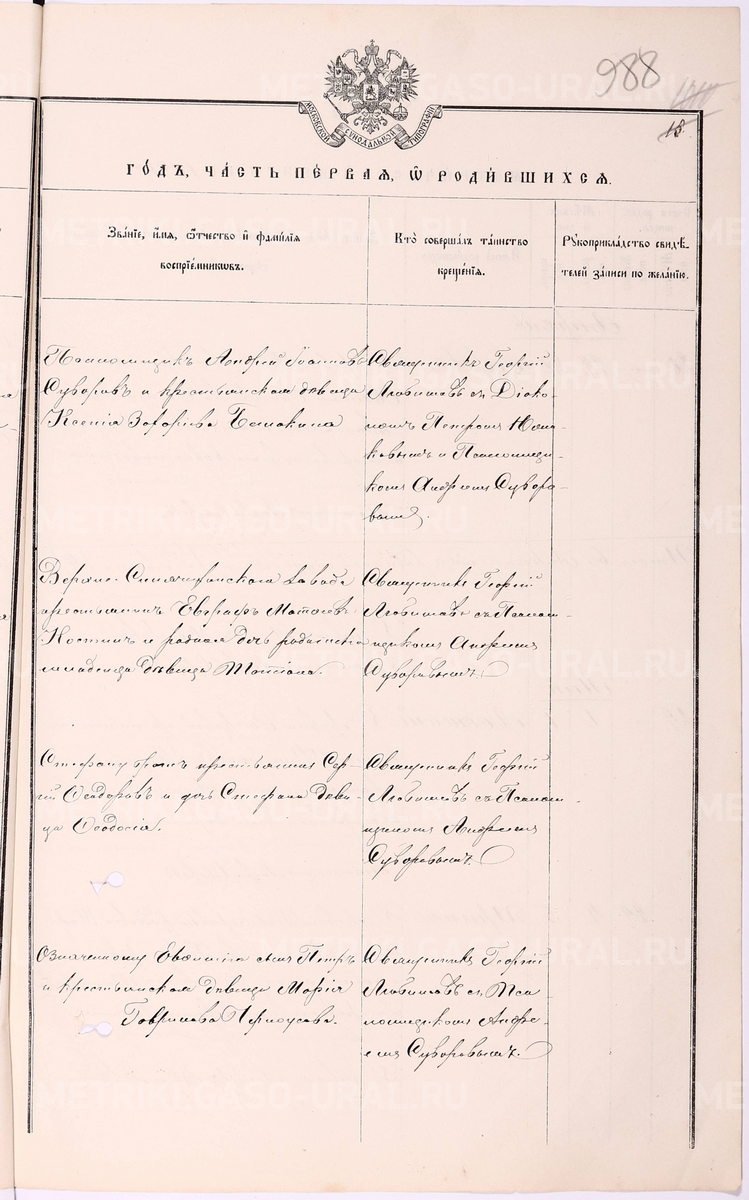 988
18
МОСКОВСКОЙ СѴНОДАЛЬНОЙ ТИПОГРАФІИ
ГОДЪ, ЧАСТЬ ПЕРВАЯ, Ѡ РОДИВШИХСЯ.
Званіе, имя, ѻтчество и фамилія
воспріемникѡвъ.
Кто совершалъ таинство
крещенія.
Рукоприкладство свидѣ-
телей записи по желанію.
Псаломщикъ Андрей Іоанновъ
Суворовъ и крестьянская дѣвица
Ксенія Захарова
Священникъ Георгій
Любимовъ съ Діако-
номъ Петромъ
и Псаломщи-
комъ Андреемъ Суворо-
вымъ.
Верхне- завода
крестьянинъ Евграфъ
Костинъ и родная дочь
младенца дѣвица Татіана.
Священникъ Георгій
Любимовъ съ Псалом-
щикомъ Андреемъ
Суворовымъ.
Стефану братъ крестьянинъ Сер-
гій Ѳеодоровъ и дочь Стефана дѣви-
ца Ѳеодосія.
Священникъ Георгій
Любимовъ съ Псалом-
щикомъ Андреемъ
Суворовымъ.
Означенному сынъ Петръ
и крестьянская дѣвица Марія
Гаврилова Черноусова.
Священникъ Георгій
Любимовъ съ Пса-
ломщикомъ Андре-
емъ Суворовымъ.
METRIKI.GASO-URAL.RU